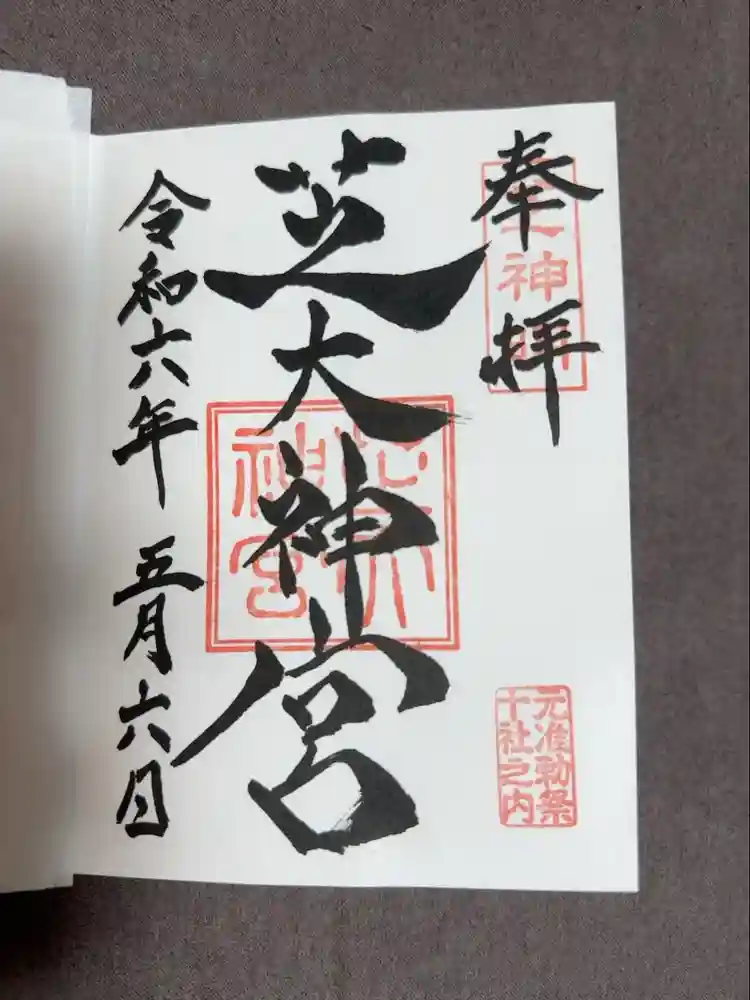 奉拝
芝大神宮
芝大神宮
元准勅祭
十社之内
令和六年 五月六日